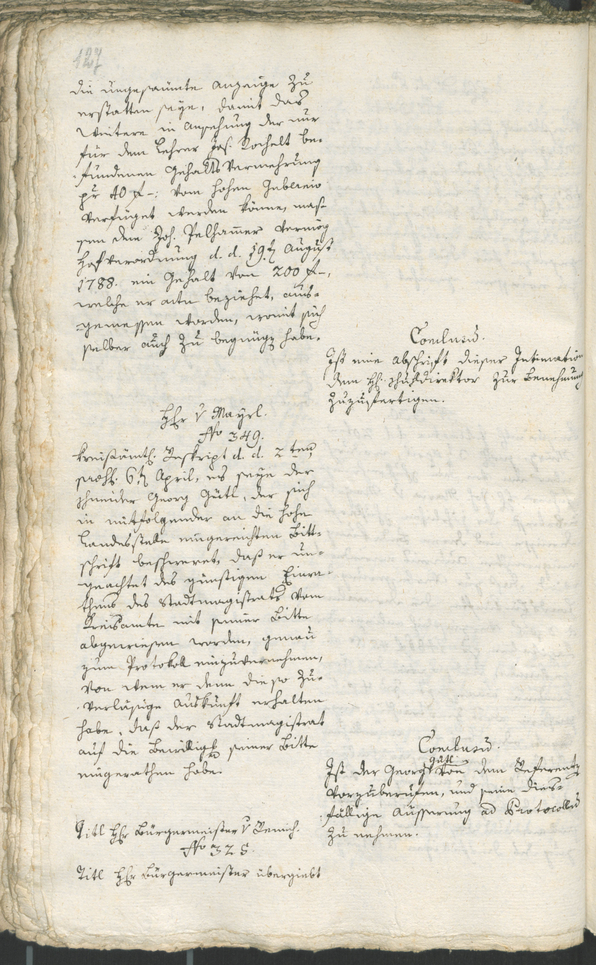 127
die ungesäumte Anzeige zu
erstatten seye, damit das
Weitere in Ansehung der nur
für dem Lehrer Jos. Rochelt be-
fundenen Gehalts Vermehrung
pr 40 f –: vom hohen Gubernio
verfüget werden könne, mas-
sen dem Joh. Pelhamer vermög
Hofverordnung d. d. 19t August
1788. ein Gehalt von 200 f –,
welche er actu beziehet, aus-
gemessen worden, womit sich
selber auch zu begnügen habe.
Conclusum.
Ist eine Abschrift dieser Intimation
dem H Schuldirektor zur Benehmung
zuzufertigen.
Hr v Mayrl.
No 349.
Kreisämtl. Reskript d. d. 2ten
praes. 6t April, es seye der
Schneider Georg Gütl, der sich
in mitfolgender an die hohe
Landesstelle eingereichten Bitt-
schrift beschweret, daß er un-
geachtet des günstigen Einra-
thens des Stadtmagistrats vom
Kreisamte mit seiner Bitte
abgewiesen worden, genau
zum Protokoll einzuvernehmen,
von wem er denn diese zu-
verläßige Auskunft erhalten
habe, daß der Stadtmagistrat
auf die Bewilligg seiner Bitte
eingerathen habe.
Conclusum.
Ist der Georg Gütl von dem Referenten
vorzuberufen, und seine dies-
fällige Äusserung ad Protocollum
zu nehmen.
Titl Hr Bürgermeister v
No 328.
Titl Hr Bürgermeister übergiebt